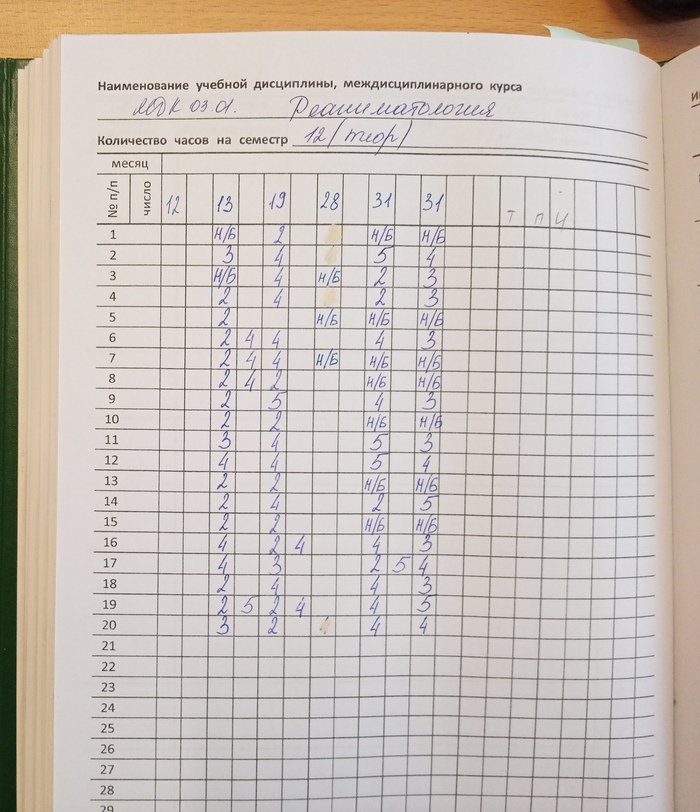 Наименование учебной дисциплины, междисциплинарного курса
МДК 03.01. Реаниматология
Количество часов на семестр 12 (теор)
месяц
№ п/п число 12 13 19 28 31 31 Т П Ч
1 Н/Б 2 Н/Б Н/Б
2 3 4 5 4
3 Н/Б 4 Н/Б 2 3
4 2 4 2 3
5 2 Н/Б Н/Б Н/Б
6 2 4 4 4 3
7 2 4 4 Н/Б Н/Б Н/Б
8 2 4 2 Н/Б Н/Б
9 2 5 4 3
10 2 2 Н/Б Н/Б
11 3 4 5 3
12 4 4 5 4
13 2 2 Н/Б Н/Б
14 2 4 2 5
15 2 2 Н/Б Н/Б
16 4 2 4 4 3
17 4 3 2 5 4
18 2 4 4 3
19 2 5 2 4 4 5
20 3 2 4 4
21
22
23
24
25
26
27
28
29